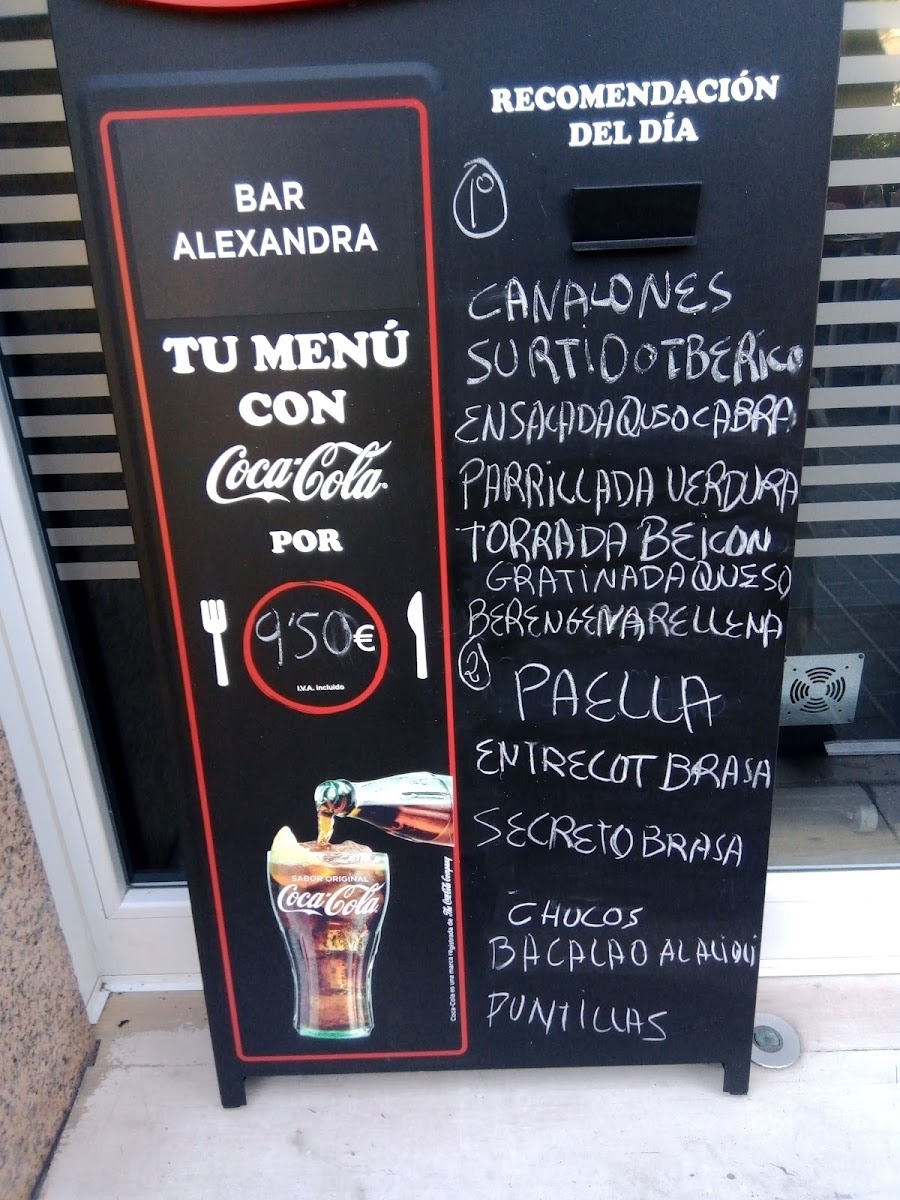 BAR
ALEXANDRA
TU MENÚ
CON
Coca-Cola
POR
9'50€
I.V.A. incluido
SABOR ORIGINAL
Coca-Cola
Coca-Cola es una marca registrada de The Coca-Cola Company
RECOMENDACIÓN
DEL DÍA
1º
CANALONES
SURTIDO IBERICO
ENSALADA QUSO CABRA
PARRILLADA VERDURA
TORRADA BEICON
GRATINADA QUESO
BERENGENA RELLENA
2
PAELLA
ENTRECOT BRASA
SECRETO BRASA
CHOCOS
BACALAO AL ALIOLI
PUNTILLAS